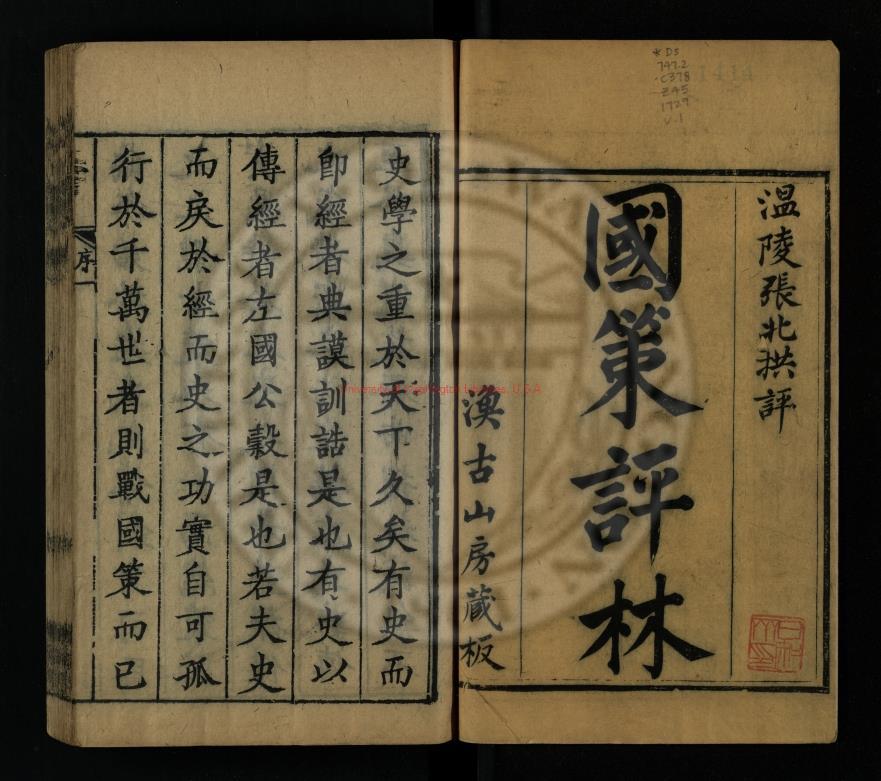 *DS
747.2
.C378
Z45
1729
v.1
温陵張北拱評
國策評林
漁古山房蔵板
史學之重於天下久矣有史而
即經者典謨訓誥是也有史以
傳經者左國公穀是也若夫史
而戾於經而史之功實自可孤
行於千萬世者則戰國策而已
序一